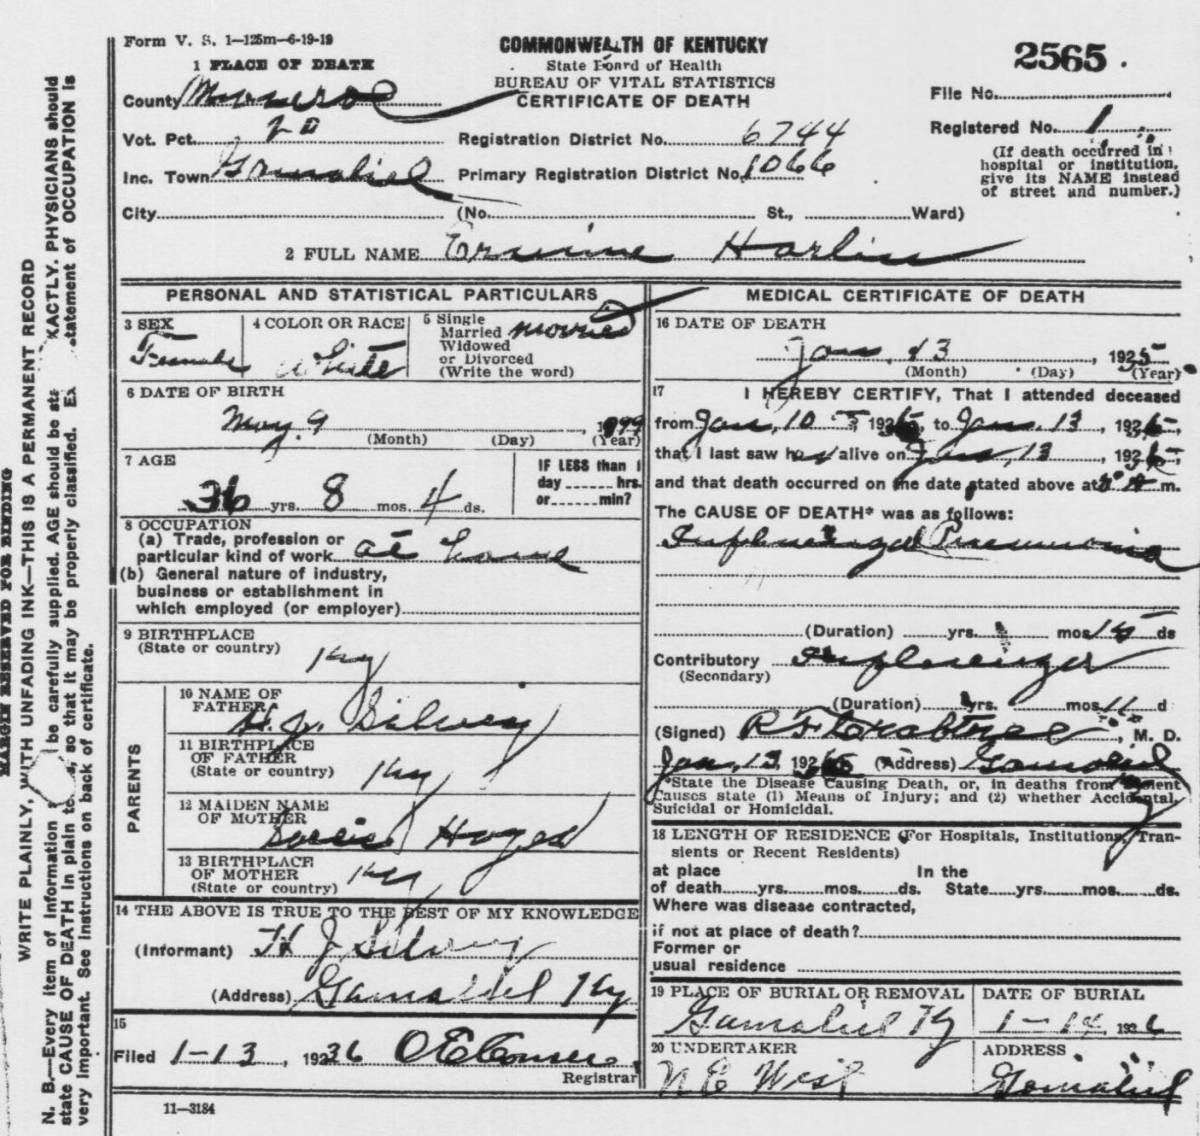 Form V. S. 1—125m—6-19-19
COMMONWEALTH OF KENTUCKY
State Board of Health
BUREAU OF VITAL STATISTICS
CERTIFICATE OF DEATH
2565
1 PLACE OF DEATH
County Monroe
File No.
Vot. Pct. 20
Registration District No. 6744
Registered No. 1
Inc. Town Gamaliel
Primary Registration District No. 1066
(If death occurred in
hospital or institution,
give its NAME instead
of street and number.)
City (No. St., Ward)
2 FULL NAME Ervine Harlin
PERSONAL AND STATISTICAL PARTICULARS
3 SEX
Female
4 COLOR OR RACE
White
5 Single
Married
Widowed
or Divorced
(Write the word)
6 DATE OF BIRTH
May 9, 1899
(Month) (Day) (Year)
7 AGE
36 yrs. 8 mos. 4 ds.
IF LESS than 1
day hrs.
or min?
8 OCCUPATION
(a) Trade, profession or
particular kind of work at home
(b) General nature of industry,
business or establishment in
which employed (or employer)
9 BIRTHPLACE
(State or country)
Ky
PARENTS
10 NAME OF
FATHER
H. J. Silvey
11 BIRTHPLACE
OF FATHER
(State or country)
Ky
12 MAIDEN NAME
OF MOTHER
13 BIRTHPLACE
OF MOTHER
(State or country)
Ky
14 THE ABOVE IS TRUE TO THE BEST OF MY KNOWLEDGE
(Informant) H J Silvey
(Address) Gamaliel Ky
15
Filed 1-13, 1936
Registrar
11—3184
MEDICAL CERTIFICATE OF DEATH
16 DATE OF DEATH
Jan, 13, 192
(Month) (Day) (Year)
17
I HEREBY CERTIFY, That I attended deceased
from Jan, 10, 192 , to Jan. 13, 192 ,
that I last saw h alive on Jan, 13, 192 ,
and that death occurred on the date stated above at m.
The CAUSE OF DEATH* was as follows:
Pneumonia
(Duration) yrs. mos. ds
Contributory
(Secondary)
(Duration) yrs. mos. 11 d
(Signed) R F Crabtree, M. D.
Jan, 13, 192 (Address) Gamaliel Ky
*State the Disease Causing Death, or, in deaths from
Causes state (1) Means of Injury; and (2) whether Accidental,
Suicidal or Homicidal.
18 LENGTH OF RESIDENCE (For Hospitals, Institutions, Tran-
sients or Recent Residents)
at place
of death yrs. mos. ds.
In the
State yrs. mos. ds.
Where was disease contracted,
if not at place of death?
Former or
usual residence
19 PLACE OF BURIAL OR REMOVAL
Gamaliel Ky
DATE OF BURIAL
1-14, 1936
20 UNDERTAKER
N E West
ADDRESS
Gamaliel
MARGIN RESERVED FOR BINDING
WRITE PLAINLY, WITH UNFADING INK—THIS IS A PERMANENT RECORD
N. B.—Every item of information be carefully supplied. AGE should be EXACTLY. PHYSICIANS should
state CAUSE OF DEATH in plain so that it may be properly classified. statement of OCCUPATION is
very important. See instructions on back of certificate.